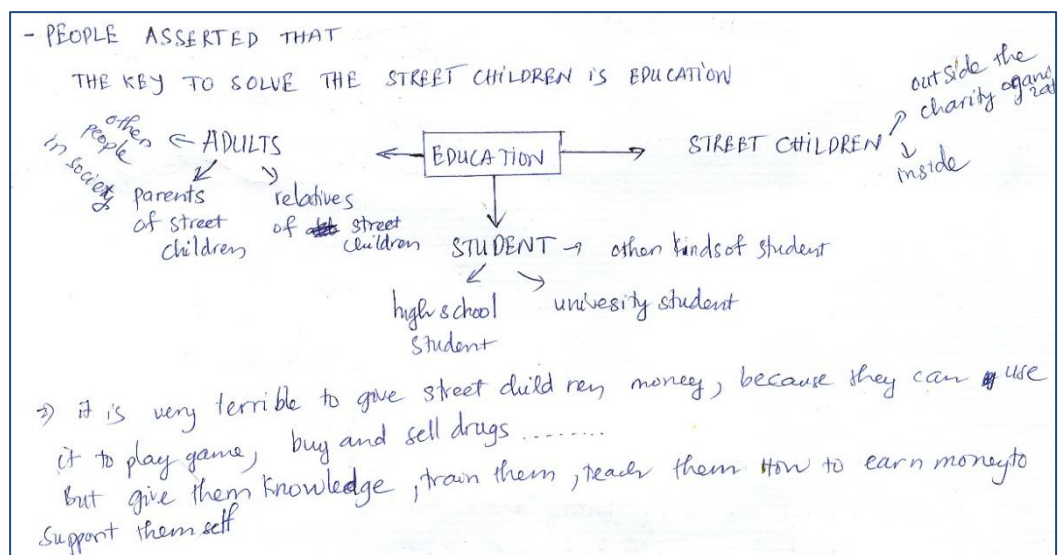 - PEOPLE ASSERTED THAT
THE KEY TO SOLVE THE STREET CHILDREN IS EDUCATION
other people in society
← ADULTS
← EDUCATION →
STREET CHILDREN
outside the charity
inside
parents of street children
relatives of street children
STUDENT → other kinds of student
high school student
univesity student
⇒ it is very terrible to give street child ren money, because they can use
it to play game, buy and sell drugs ........
But give them knowledge, train them, teach them How to earn money to
support them self